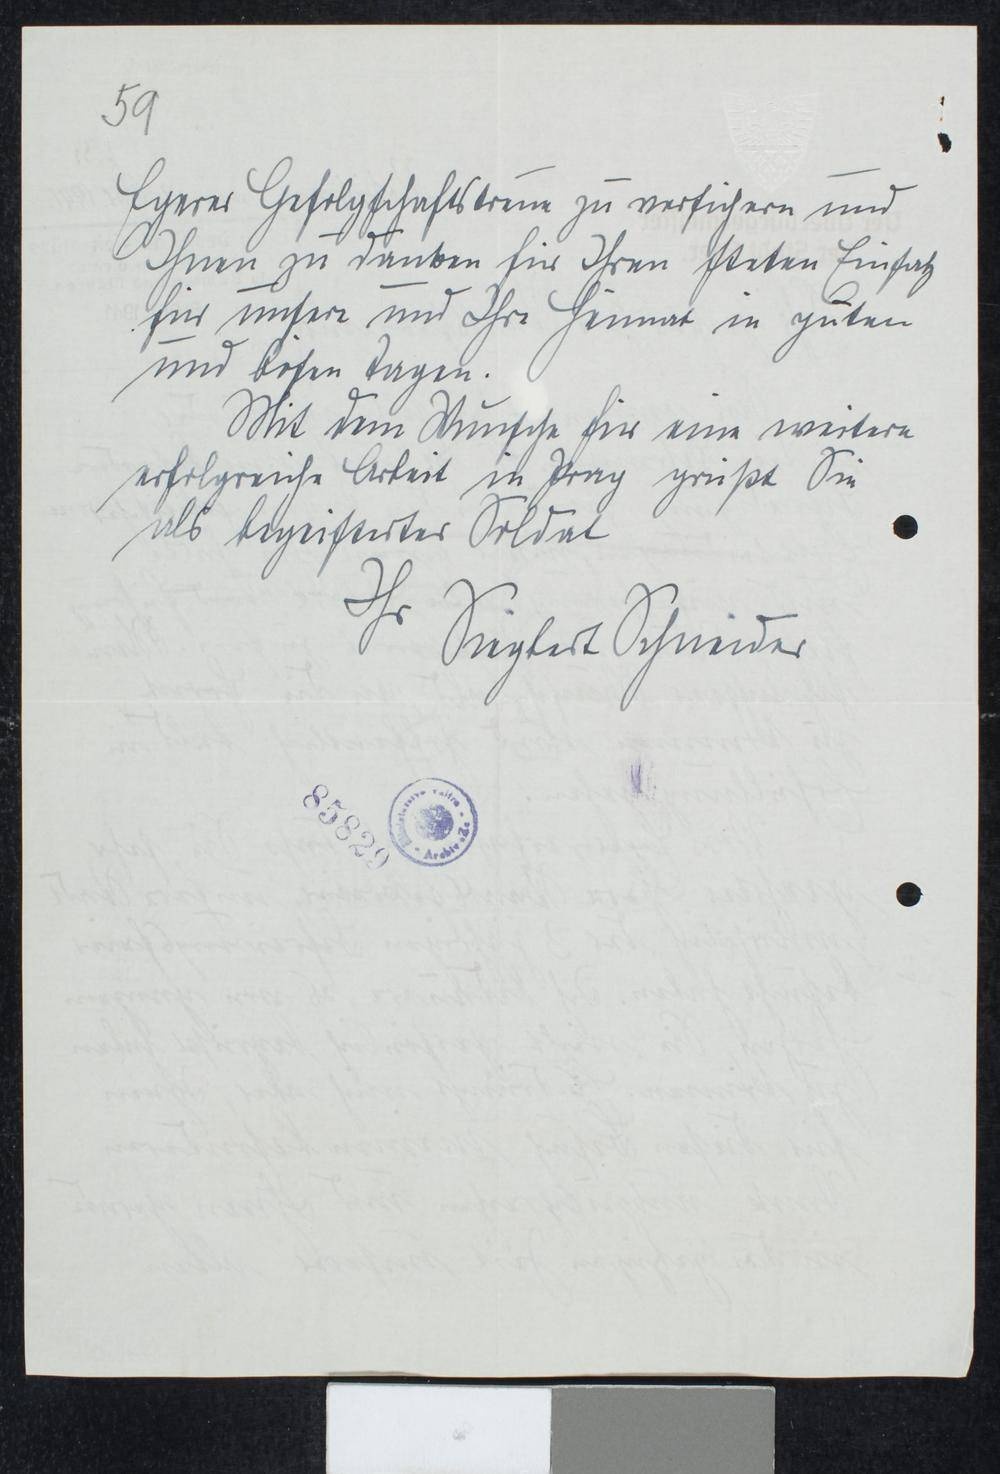 59
Egerer Gefolgschaftstreue zu versichern und
Ihnen zu danken für Ihren steten Einsatz
für unsere und Ihre Heimat in guten
und bösen Tagen.
Mit dem Wunsche für eine weitere
erfolgreiche Arbeit in Prag grüßt Sie
als begeisterter Soldat
Ihr Siegbert Schneider
85829
Ministerstvo vnitra
Archiv